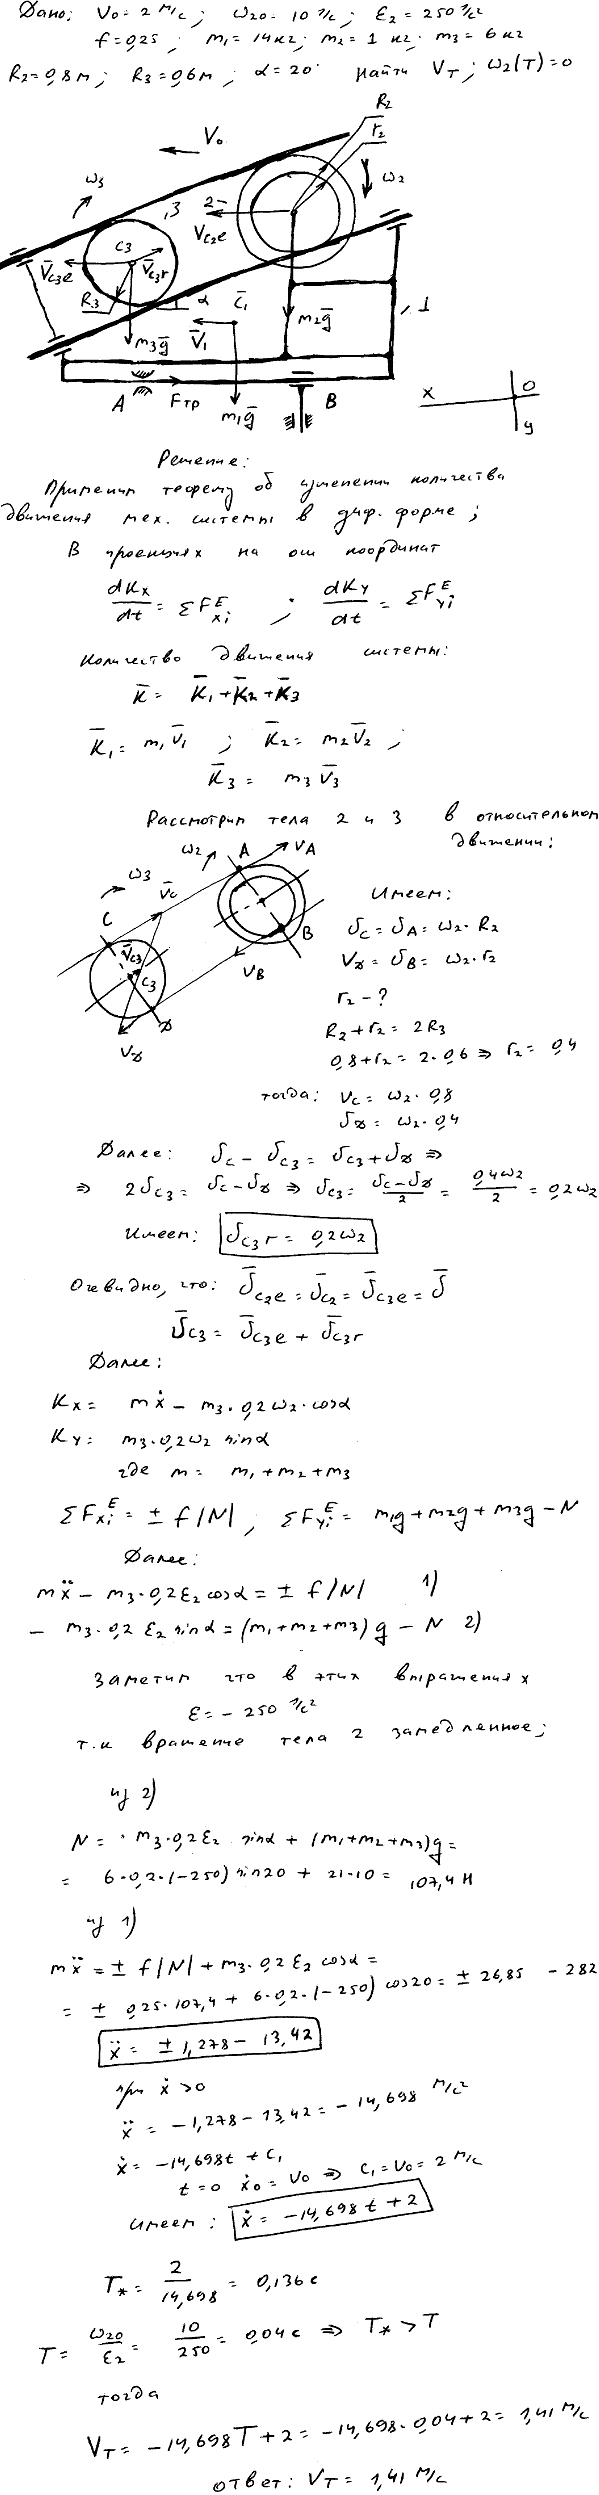 Дано: V₀ = 2 м/с; ω₂₀ = 10 1/с; ε₂ = 250 1/с²
f = 0,25; m₁ = 14 кг; m₂ = 1 кг; m₃ = 6 кг
R₂ = 0,8 м; R₃ = 0,6 м; α = 20° найти V_T; ω₂(T) = 0
R₂
r₂
V₀
ω₃
ω₂
3
2
V̄c₂e
C₃
V̄c₃e
V̄c₃r
R₃
α
C̄₁
m₂ḡ
1
m₃ḡ
V̄₁
A
Fтр
m₁ḡ
B
x
O
y
Решение:
Применим теорему об изменении количества
движения мех. системы в диф. форме;
В проекциях на оси координат
dKx/dt = ΣFxi^E ; dKy/dt = ΣFyi^E
Количество движения системы:
K̄ = K̄₁ + K̄₂ + K̄₃
K̄₁ = m₁V̄₁ ; K̄₂ = m₂V̄₂ ;
K̄₃ = m₃V̄₃
Рассмотрим тела 2 и 3 в относительном
движении:
ω₂
A
VA
ω₃
V̄c
C
V̄c₃
C₃
B
VB
D
V_D
Имеем:
Vc = VA = ω₂·R₂
V_D = VB = ω₂·r₂
r₂ - ?
R₂ + r₂ = 2R₃
0,8 + r₂ = 2·0,6 ⇒ r₂ = 0,4
тогда: Vc = ω₂·0,8
V_D = ω₂·0,4
Далее: Vc - Vc₃ = Vc₃ + V_D ⇒
⇒ 2Vc₃ = Vc - V_D ⇒ Vc₃ = (Vc - V_D)/2 = 0,4ω₂/2 = 0,2ω₂
Имеем: Vc₃r = 0,2ω₂
Очевидно, что: V̄c₂e = V̄c₂ = V̄c₃e = V̄
V̄c₃ = V̄c₃e + V̄c₃r
Далее:
Kx = mẋ - m₃·0,2ω₂·cosα
Ky = m₃·0,2ω₂ sinα
где m = m₁ + m₂ + m₃
ΣFxi^E = ± f|N| ; ΣFyi^E = m₁g + m₂g + m₃g - N
Далее:
mẍ - m₃·0,2ε₂cosα = ± f|N| 1)
- m₃·0,2 ε₂ sinα = (m₁+m₂+m₃)g - N 2)
Заметим что в этих выражениях
ε = - 250 1/с²
т.к вращение тела 2 замедленное;
из 2)
N = m₃·0,2ε₂ sinα + (m₁+m₂+m₃)g =
= 6·0,2·(-250) sin20 + 21·10 = 107,4 Н
из 1)
mẍ = ± f|N| + m₃·0,2ε₂ cosα =
= ± 0,25·107,4 + 6·0,2·(-250) cos20 = ± 26,85 - 282
ẍ = ± 1,278 - 13,42
при ẋ > 0
ẍ = -1,278 - 13,42 = - 14,698 м/с²
ẋ = -14,698t + C₁
t = 0 ẋ₀ = V₀ ⇒ C₁ = V₀ = 2 м/с
Имеем: ẋ = -14,698 t + 2
T* = 2/14,698 = 0,136 с
T = ω₂₀/ε₂ = 10/250 = 0,04 с ⇒ T* > T
тогда
V_T = -14,698T + 2 = -14,698·0,04 + 2 = 1,41 м/с
ответ: V_T = 1,41 м/с